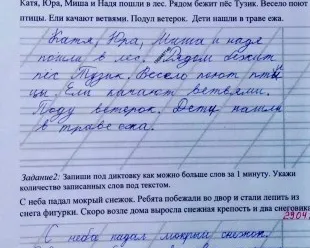 Катя, Юра, Миша и Надя пошли в лес. Рядом бежит пёс Тузик. Весело поют
птицы. Ели качают ветвями. Подул ветерок. Дети нашли в траве ежа.
Катя, Юра, Миша и надя
пошли в лес. Рядом бежит
пес Тузик. Весело поют пти
цы Ели качают ветвями.
Поду ветерок. Дети нашли
в траве ежа.
Задание2: Запиши под диктовку как можно больше слов за 1 минуту. Укажи
количество записанных слов под текстом.
С неба падал мокрый снежок. Ребята побежали во двор и стали лепить из
снега фигурки. Скоро возле дома выросла снежная крепость и два снеговика
29.04
С неба падал мокрый снежок.